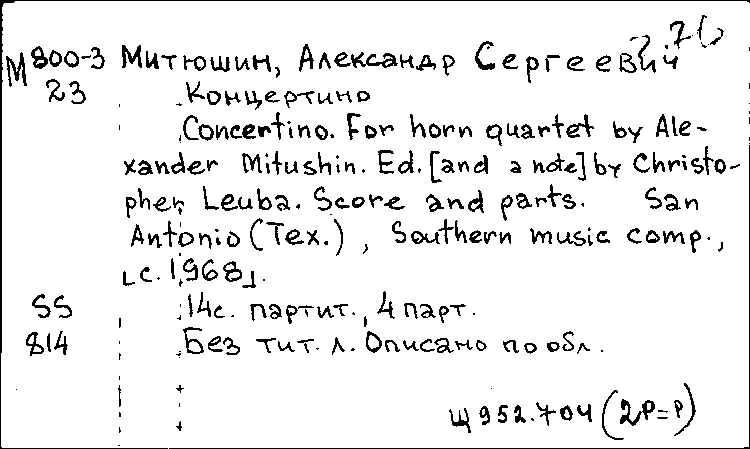 М 800-3 Митюшин, Александр Сергеевич
23 Концертино
Concertino. For horn quartet by Ale-
xander Mitushin. Ed. [and a note] by Christo-
pher Leuba. Score and parts. San
Antonio (Tex.), Southern music comp.,
[c. 1968].
SS 14с. партит., 4 парт.
814 Без тит. л. Описано по обл.
Ц 952.704 (2р=р)